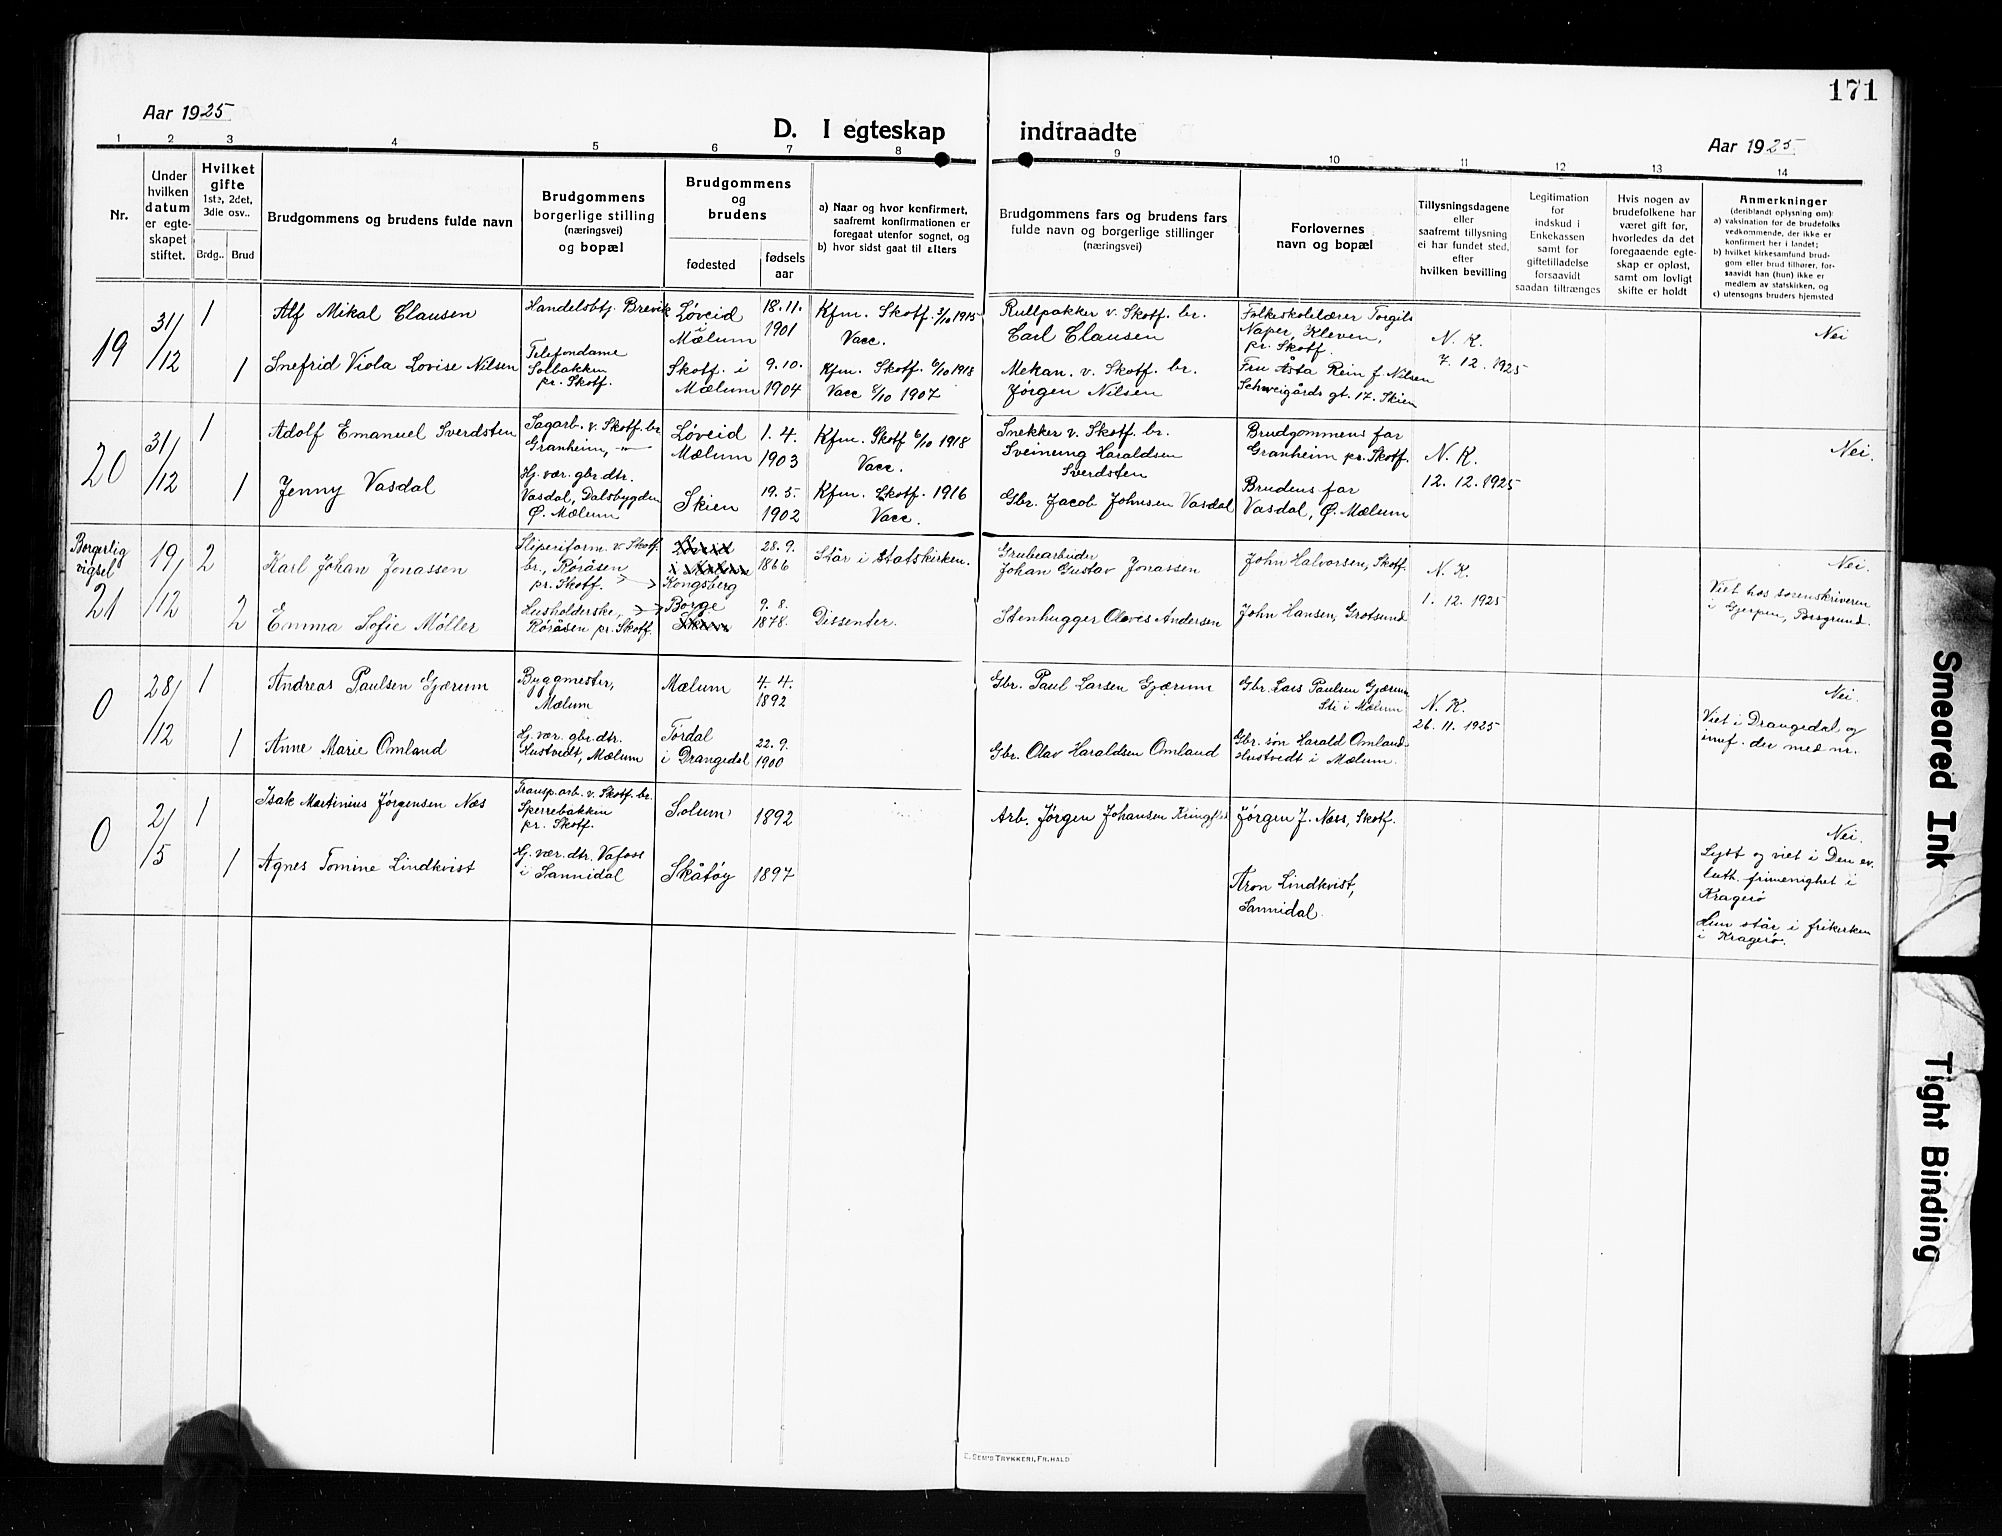 171
Aar 1925
D. I egteskap indtraadte
Aar 1925
1 2 3 4 5 6 7 8 9 10 11 12 13 14
Nr.
Under
hvilken
datum
er egte-
skapet
stiftet.
Hvilket
gifte
1ste, 2det,
3die osv..
Brdg.. Brud
Brudgommens og brudens fulde navn
Brudgommens
borgerlige stilling
(næringsvei)
og bopæl
Brudgommens
og
brudens
fødested
fødsels
aar
a) Naar og hvor konfirmert,
saafremt konfirmationen er
foregaat utenfor sognet, og
b) hvor sidst gaat til alters
Brudgommens fars og brudens fars
fulde navn og borgerlige stillinger
(næringsvei)
Forlovernes
navn og bopæl
Tillysningsdagene
eller
saafremt tillysning
ei har fundet sted,
efter
hvilken bevilling
Legitimation
for
indskud i
Enkekassen
samt for
giftetilladelse
forsaavidt
saadan tiltrænges
Hvis nogen av
brudefolkene har
været gift før,
hvorledes da det
foregaaende egte-
skap er opløst,
samt om lovligt
skifte er holdt
Anmerkninger
(deriblandt oplysning om):
a) vaksination for de brudefolks
vedkommende, der ikke er
konfirmert her i landet;
b) hvilket kirkesamfund brud-
gom eller brud tilhører, for-
saavidt han (hun) ikke er
medlem av statskirken, og
c) utensogns bruders hjemsted
19
31/12
1
Alf Mikal Clausen
Handelsbtj. Brevik
Løveid
i
Mælum
18.11.
1901
Kfm. Skotf. 3/10 1915
Vacc.
Rullpakker v. Skotf. br.
Carl Clausen
Folkeskolelærer Torgils
Naper, Kleven,
pr. Skotf.
N. K.
7. 12. 1925
Nei
1
Snefrid Viola Lovise Nilsen
Telefondame
Solbakken
pr. Skotf.
Skotf. i
Mælum
9.10.
1904
Kfm. Skotf. 6/10 1918
Vacc 8/10 1907
Mekan. v. Skotf. br.
Jørgen Nilsen
Fru Åsta Rein f. Nilsen
Schweigårds gt. 17. Skien
20
31/12
1
Adolf Emanuel Sverdsten
Sagarb. v. Skotf. br
Granheim, -"-
Løveid
Mælum
1. 4.
1903
Kfm. Skotf 6/10 1918
Vacc.
Snekker v. Skotf. br.
Sveinung Haraldsen
Sverdsten
Brudgommens far
Granheim pr. Skotf.
N. K.
12. 12. 1925
Nei.
1
Jenny Vasdal
Hj. vær. gbr. dtr.
Vasdal, Dalsbygden
Ø. Mælum
Skien
19. 5.
1902
Kfm. Skotf. 1916
Vacc.
Gbr. Jacob Johnsen Vasdal
Brudens far
Vasdal, Ø. Mælum
Borgerlig
vigsel
21
19/12
2
Karl Johan Jonassen
Sliperiform. v. Skotf.
br., Roråsen
pr. Skotf.
Kongsberg
28. 9.
1866
Står i Statskirken.
Grubearbeider
Johan Gustav Jonassen
John Halvorsen, Skotf.
N. K.
1. 12. 1925
Nei.
Viet hos sorenskriveren
i Gjerpen, Porsgrund.
2
Emma Sofie Møller
Husholderske,
Roråsen pr. Skotf.
Borge
9. 8.
1878.
Dissenter.
Stenhugger Olaves Andersen
John Hansen, Grotsund
0
28/12
1
Andreas Paulsen Gjærum
Byggmester,
Mælum
Mælum
4. 4.
1892
Gbr. Paul Larsen Gjærum
Gbr. Lars Paulsen Gjærum
Sti i Mælum
N. K.
26. 11. 1925
Nei.
Viet i Drangedal og
innf. der med nr.
1
Anne Marie Omland
Hj. vær. gbr. dtr.
Hustvedt, Mælum
Tørdal
i Drangedal
22. 9.
1900
Gbr. Olav Haraldsen Omland
Gbr. søn Harald Omland
Hustvedt i Mælum.
0
2/5
1
Isak Martinius Jørgensen Næs
Transp. arb. v. Skotf. br.
Sperrebakken
pr. Skotf.
Solum
1892
Arb. Jørgen Johansen
Jørgen J. Næss, Skotf.
Nei.
Lyst og viet i Den ev.
luth. frimenighet i
Kragerø
Hun står i frikirken
i Kragerø.
1
Agnes Tomine Lindkvist
Hj. vær. dtr. Vafoss
i Sannidal
Skåtøy
1897
Aron Lindkvist,
Sannidal.
SEM'S TRYKKERI, FR.HALD
Smeared Ink
Tight Binding